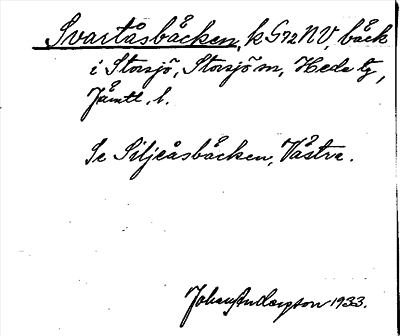 Svartåsbäcken, k G72NV, bäck
i Storsjö, Storsjö sn, Hede tg,
Jämtl. l.
Se Siljeåsbäcken, Västra.
Johan Anderson 1933.